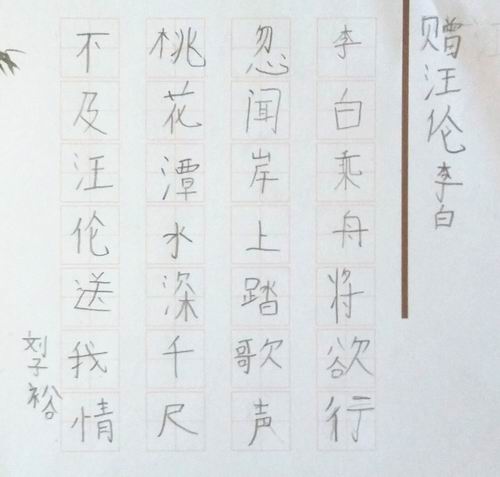 赠汪伦 李白
李白乘舟将欲行
忽闻岸上踏歌声
桃花潭水深千尺
不及汪伦送我情
刘子裕